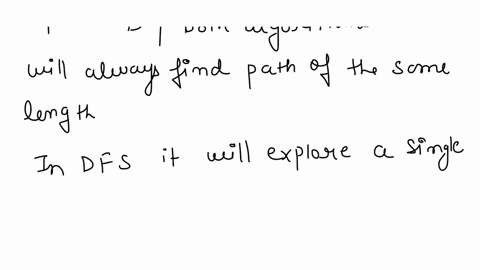 both
will always find path of the same
length
In DFS it will explore a single